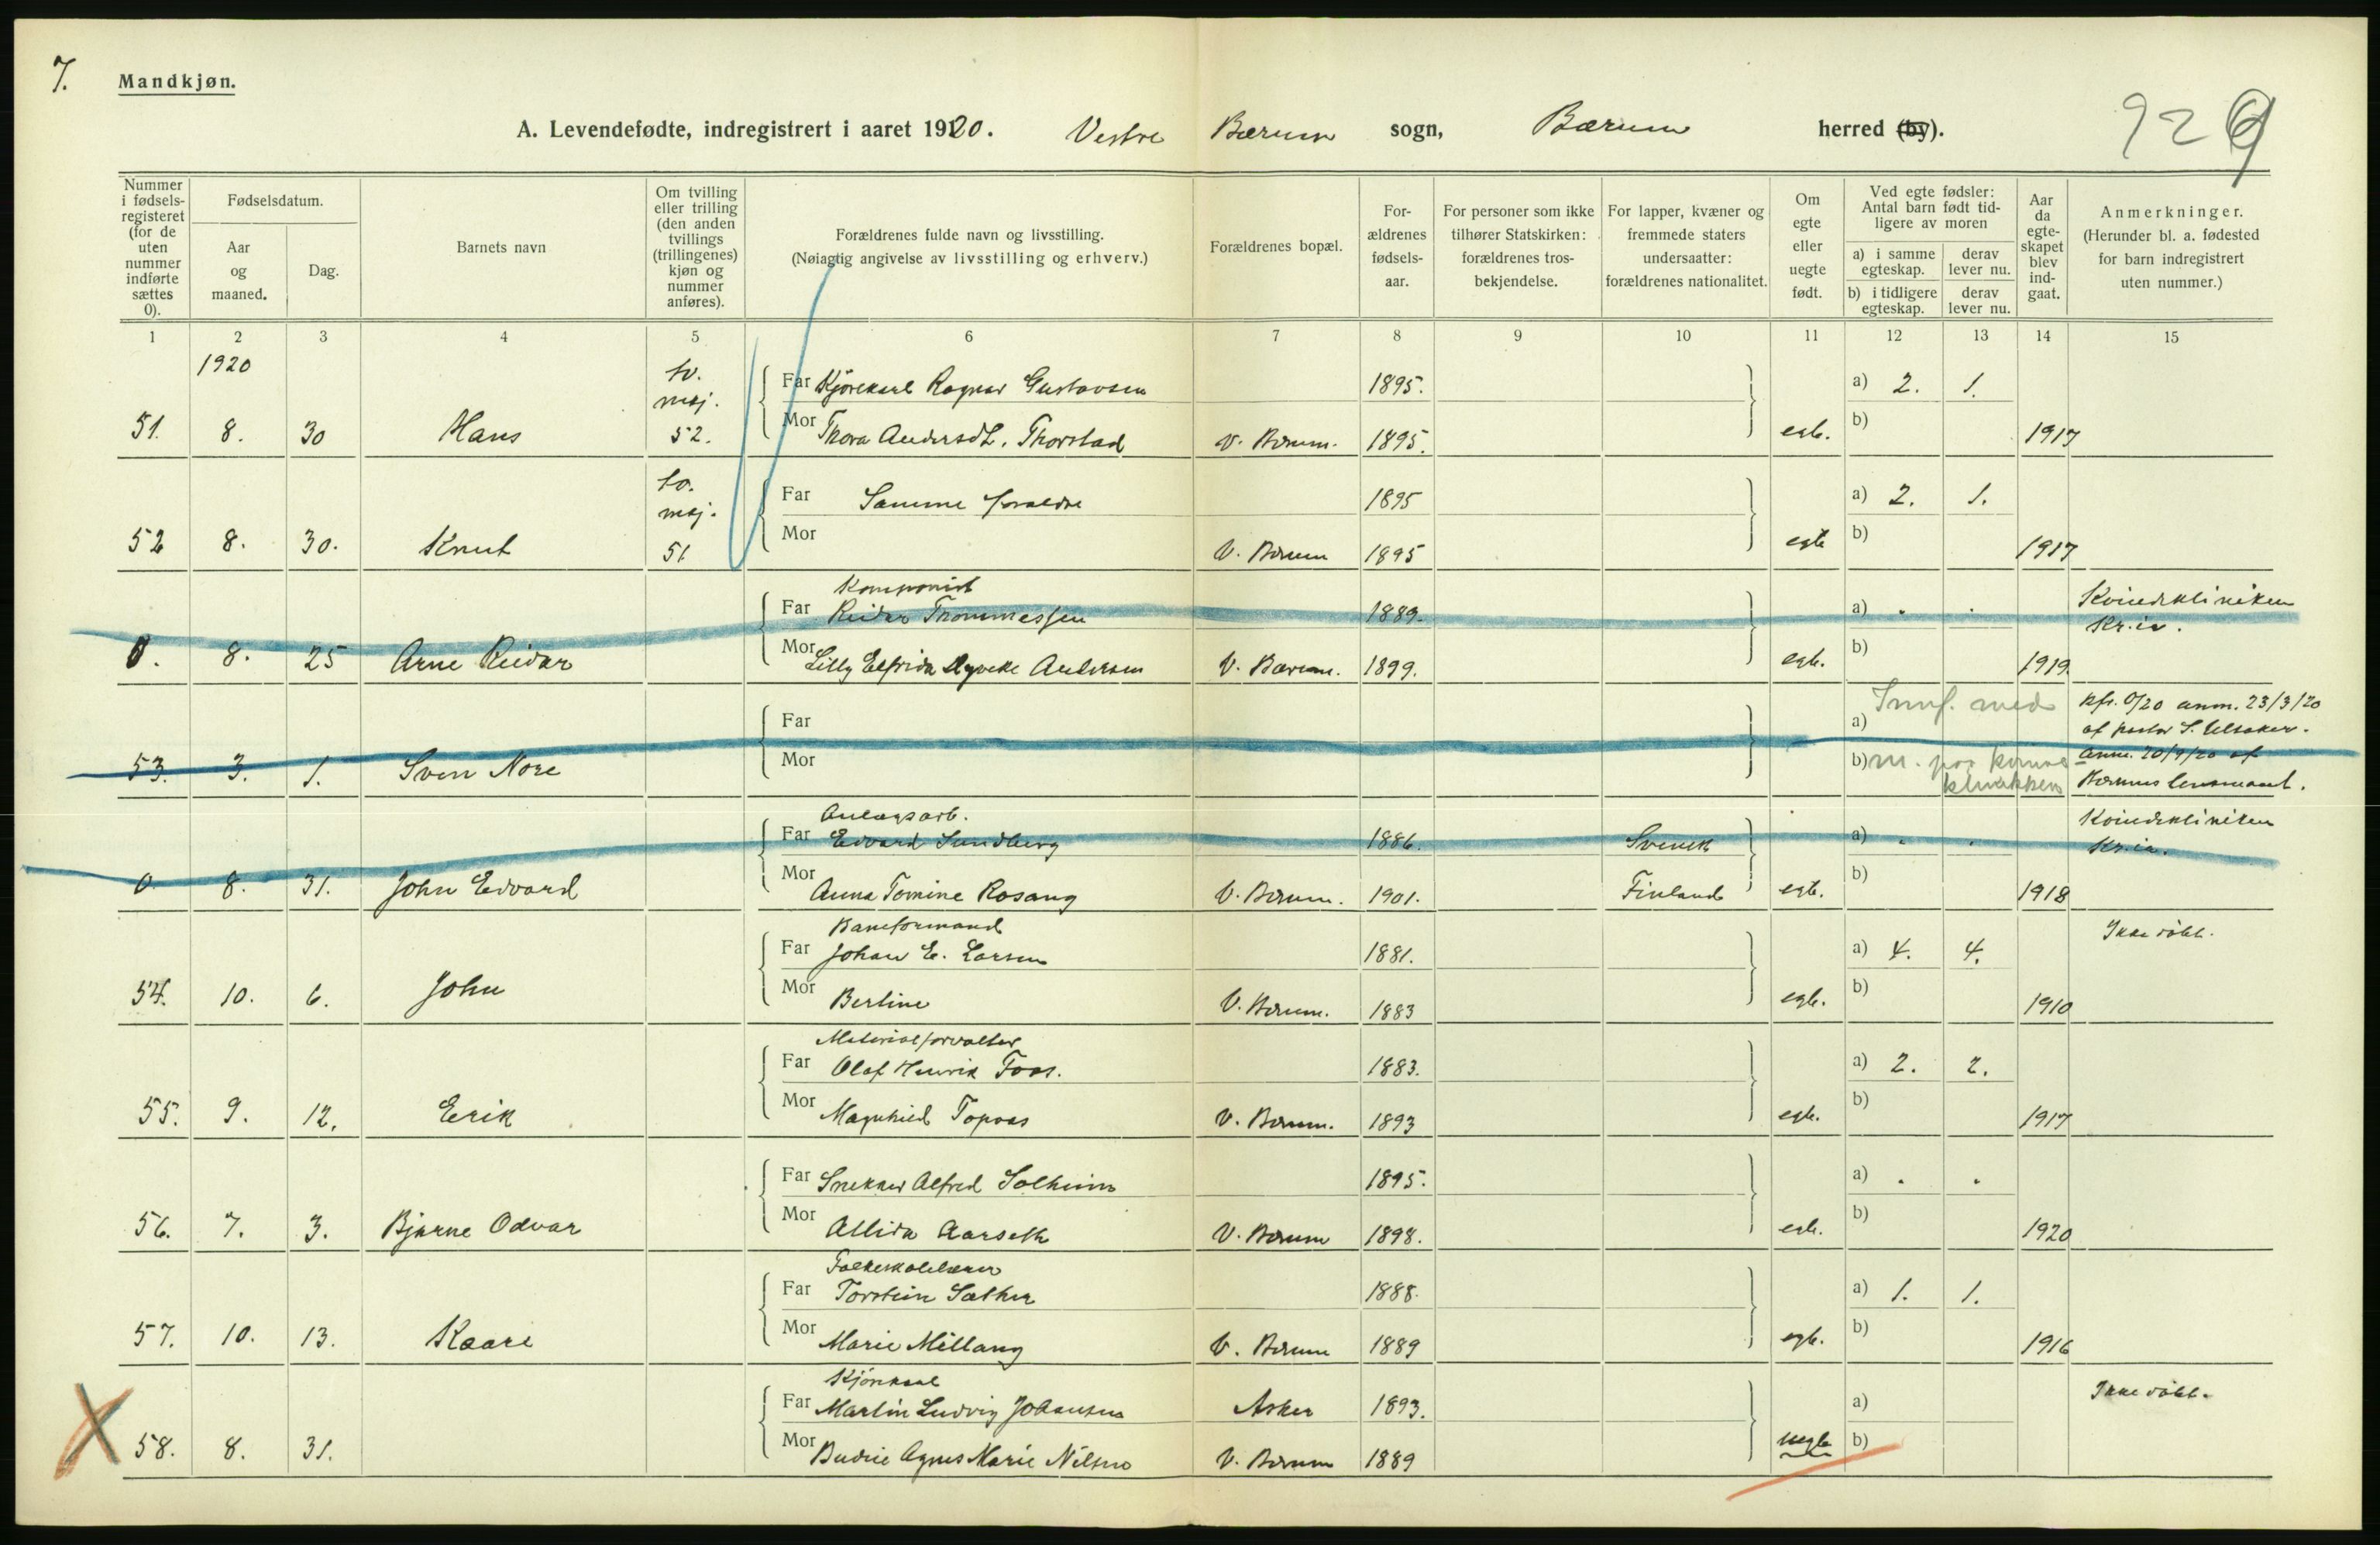 7.
Mandkjøn.
A. Levendefødte, indregistrert i aaret 1920. Vestre Bærum sogn, Bærum herred (by).
926
Nummer i fødsels-registeret (for de uten nummer indførte sættes 0).
Fødselsdatum.
Aar og maaned.
Dag.
Barnets navn
Om tvilling eller trilling (den anden tvillings (trillingenes) kjøn og nummer anføres).
Forældrenes fulde navn og livsstilling.
(Nøiagtig angivelse av livsstilling og erhverv.)
Forældrenes bopæl.
For-ældrenes fødsels-aar.
For personer som ikke tilhører Statskirken: forældrenes tros-bekjendelse.
For lapper, kvæner og fremmede staters undersaatter: forældrenes nationalitet.
Om egte eller uegte født.
Ved egte fødsler: Antal barn født tid-ligere av moren
a) i samme egteskap.
derav lever nu.
b) i tidligere egteskap.
derav lever nu.
Aar da egte-skapet blev ind-gaat.
Anmerkninger.
(Herunder bl. a. fødested for barn indregistrert uten nummer.)
1 2 3 4 5 6 7 8 9 10 11 12 13 14 15
1920
tv. Far Kjørekarl Ragnar Gustavsen 1895. a) 2. 1.
maj.
51. 8. 30 Hans 52. Mor Thora Andersdt. Thorstad V. Bærum. 1895. egte. b) 1917
tv. Far Samme foraldre 1895 a) 2. 1.
maj.
52 8. 30. Knut 51 Mor V. Bærum 1895 egte b) 1917
Komponist
Far Reidar Thommessen 1889. a) . . Kvindekliniken
Kr.ia.
0. 8. 25 Arne Reidar Mor Lilly Elfrida Dyveke Andersen V. Bærum. 1899. egte. b) 1919.
Far a) med kfr. 0/20 anm. 23/3/20
af pastor S.
53. 3. 1. Sven Nore Mor b) m. paa anm. 20/9/20 af
Bærums lensmand.
Anlægsarb.
Far Edvard Sundberg 1886. Svensk a) . . Kvindekliniken
Kr.ia.
0 8. 31. John Edvard Mor Anna Tomine Rosang V. Bærum. 1901. Finland egte. b) 1918
Baneformand
Far Johan E. Larsen 1881. a) 4. 4. Ikke døbt.
54. 10. 6. John Mor Bertine V. Bærum. 1883 egte. b) 1910
Materialforvalter
Far Olaf Henrik Foos. 1883. a) 2. 2.
55. 9. 12. Erik Mor Magnhild Topaas V. Bærum. 1893 egte. b) 1917
Far Snekker Alfred Solheim 1895. a) . .
56. 7. 3. Bjarne Odvar Mor Allida Aarseth V. Bærum 1898. egte. b) 1920
Folkeskolelærer
Far Torstein Sæther 1888. a) 1. 1.
57. 10. 13. Kaare Mor Marie Mellang V. Bærum 1889 egte. b) 1916
Kjørekarl
Far Martin Ludvig Johansen Asker 1893. a) Ikke døbt.
X 58. 8. 31. Mor Budeie Agnes Marie Nilsen V. Bærum 1889 uegte b)